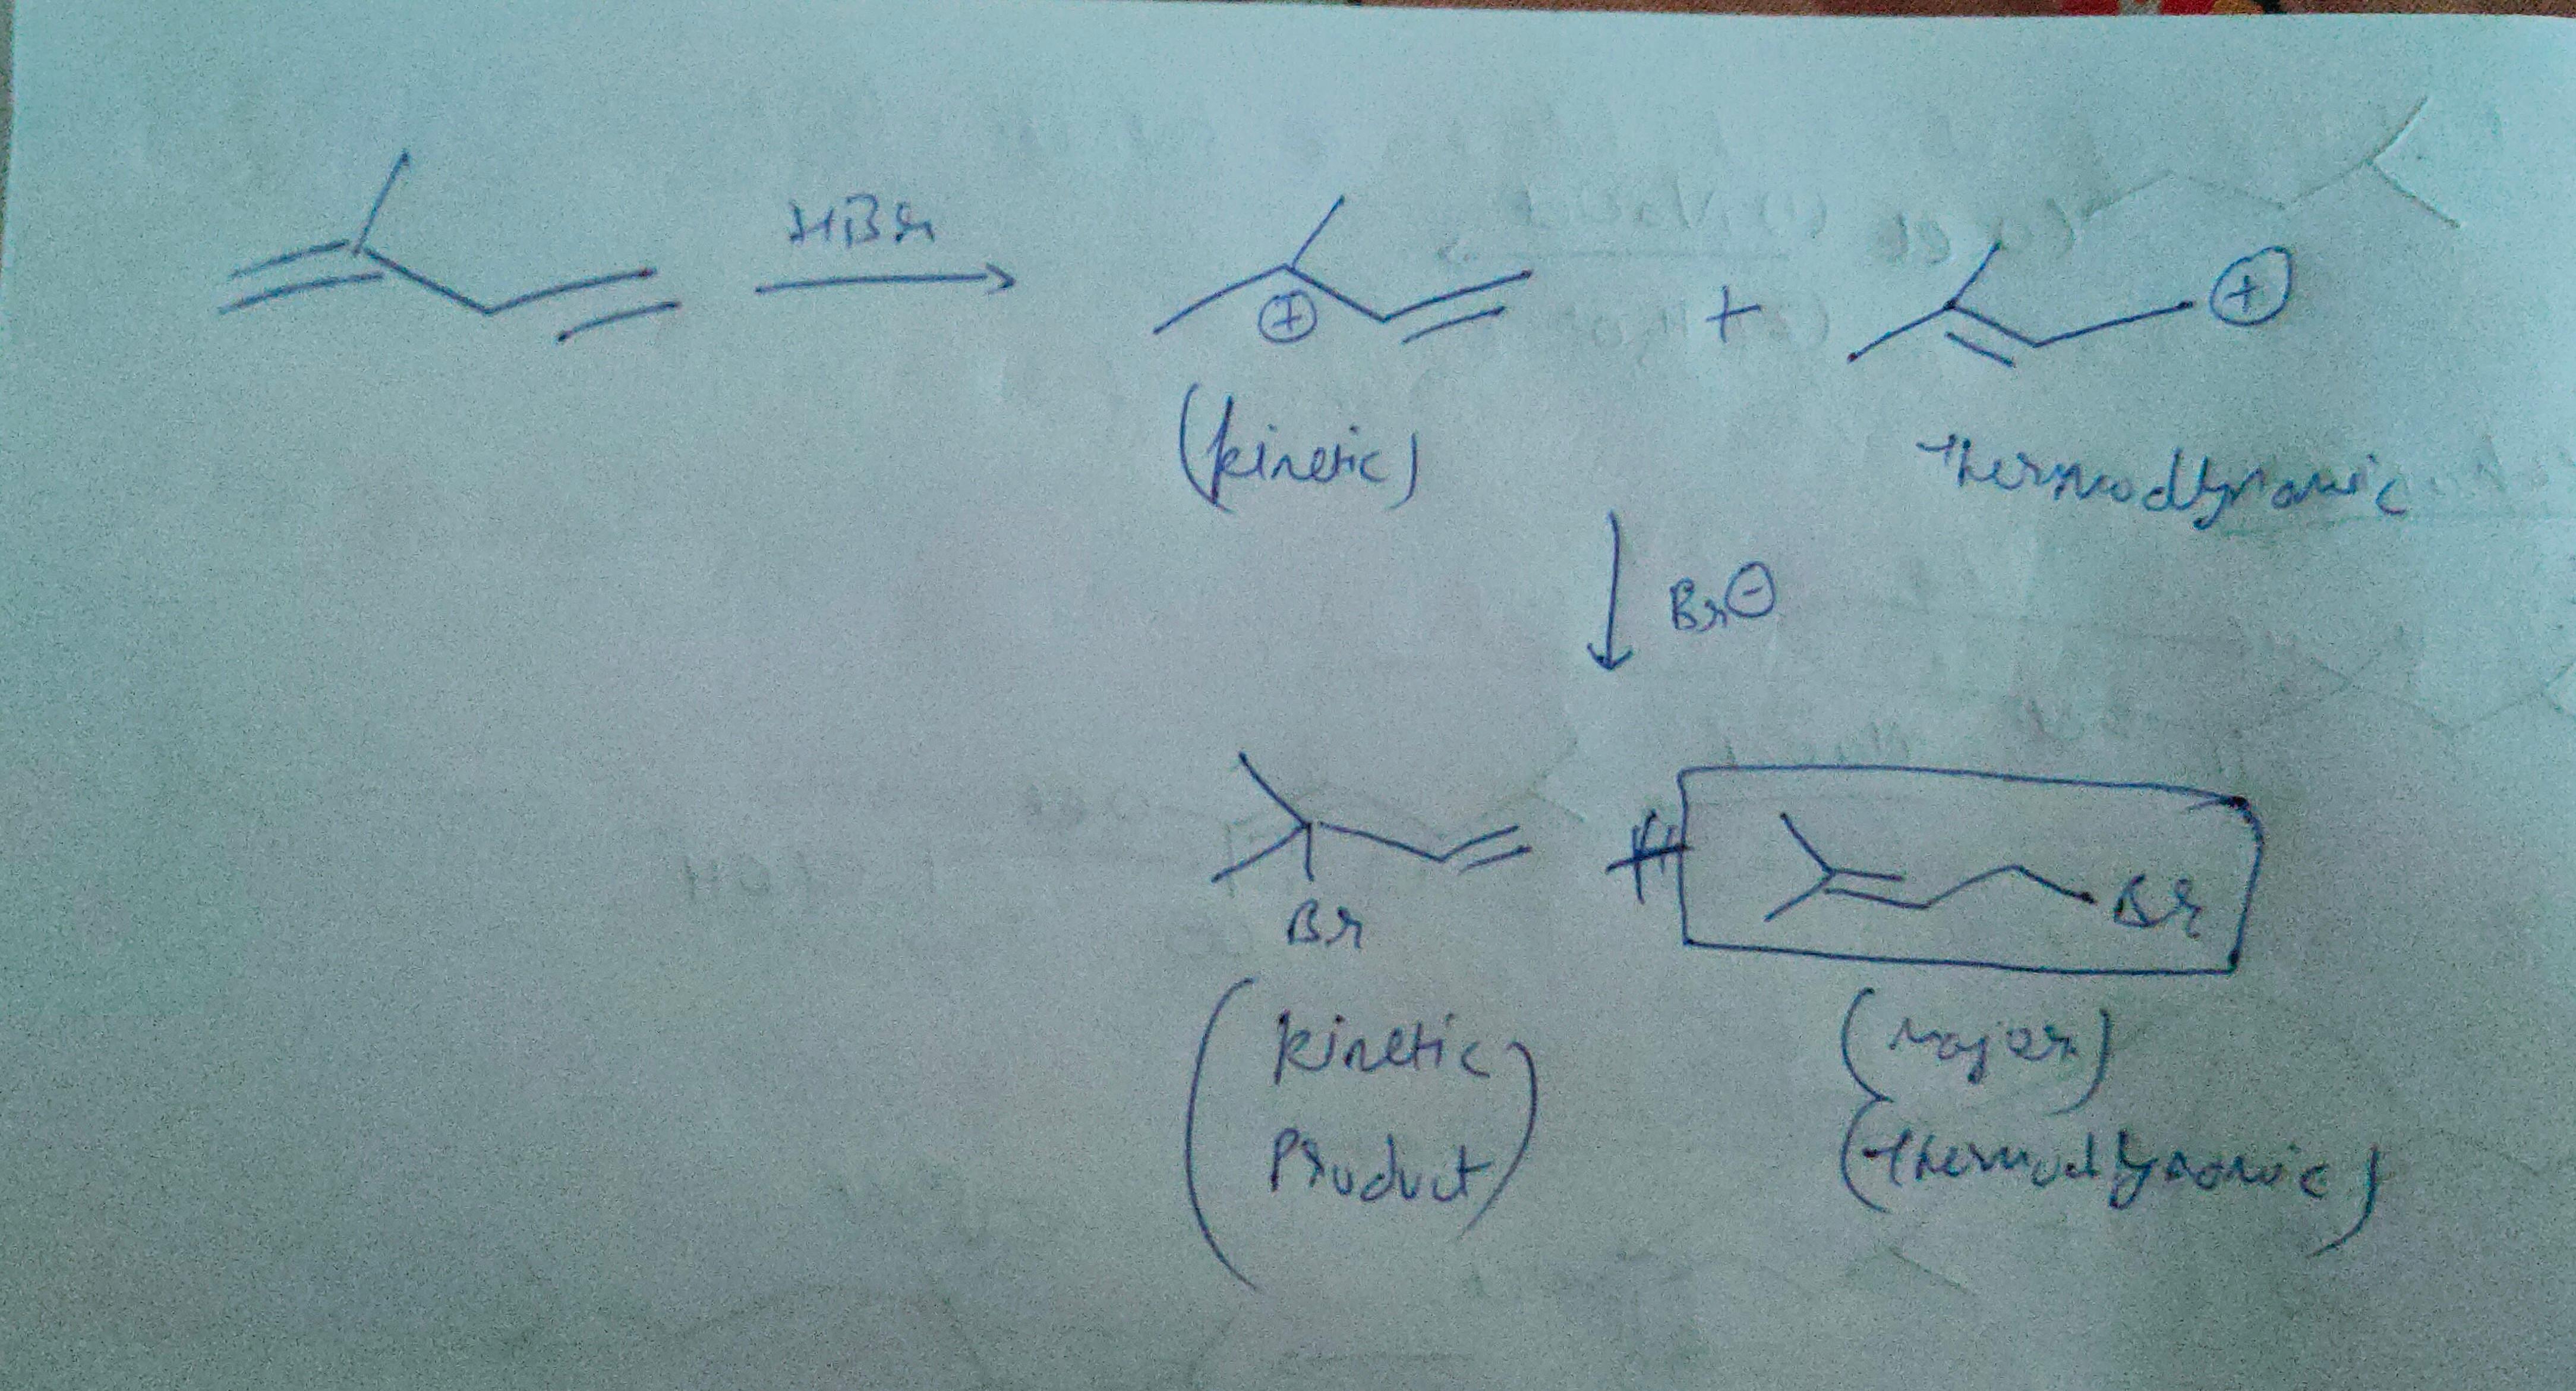 HBr
⊕ + ⊕
(kinetic) Thermodynamic
Br⊖
Br + Br
(kinetic Product) (major)
(thermodynamic)